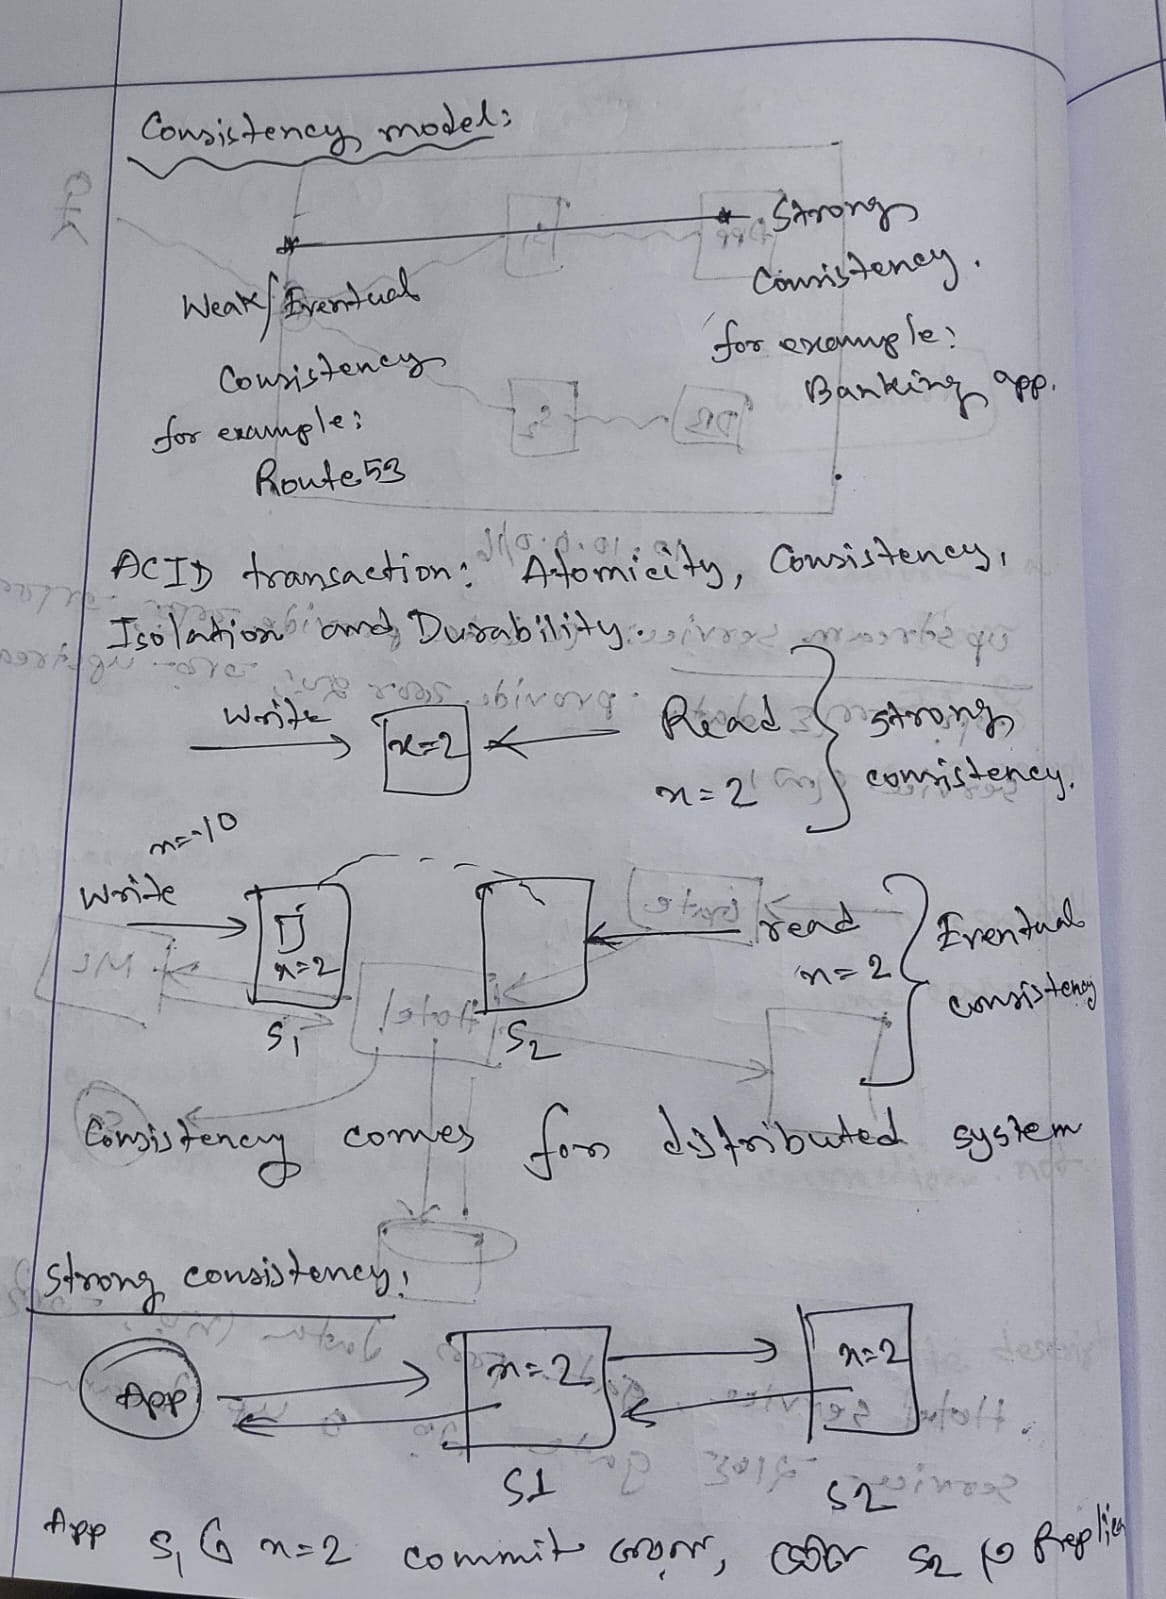 Consistency model:
Strong
Consistency.
for example:
Banking app.
Weak/Eventual
Consistency
for example:
Route53
ACID transaction: Atomicity, Consistency,
Isolation and Durability.
Write
x=2
Read
x=2
strong
consistency.
Write
x=2
S1
S2
read
x=2
Eventual
consistency
Consistency comes for distributed system
Strong consistency:
App
x=2
x=2
S1
S2
App S1 এ x=2 commit করলে, S2 তে Replica